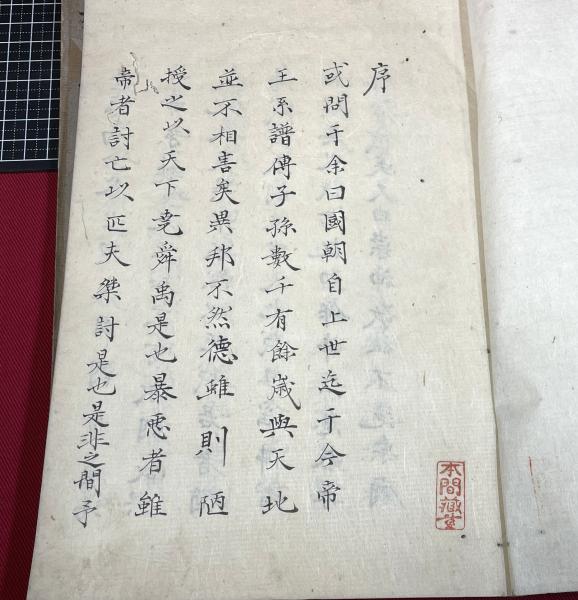 序
或問于余曰國朝自上世迄于今帝
王系譜傳子孫數千有餘歳與天地
並不相害矣異邦不然德雖則陋
授之以天下堯舜禹是也暴悪者雖
帝者討亡以匹夫桀討是也是非之間予
本間蔵